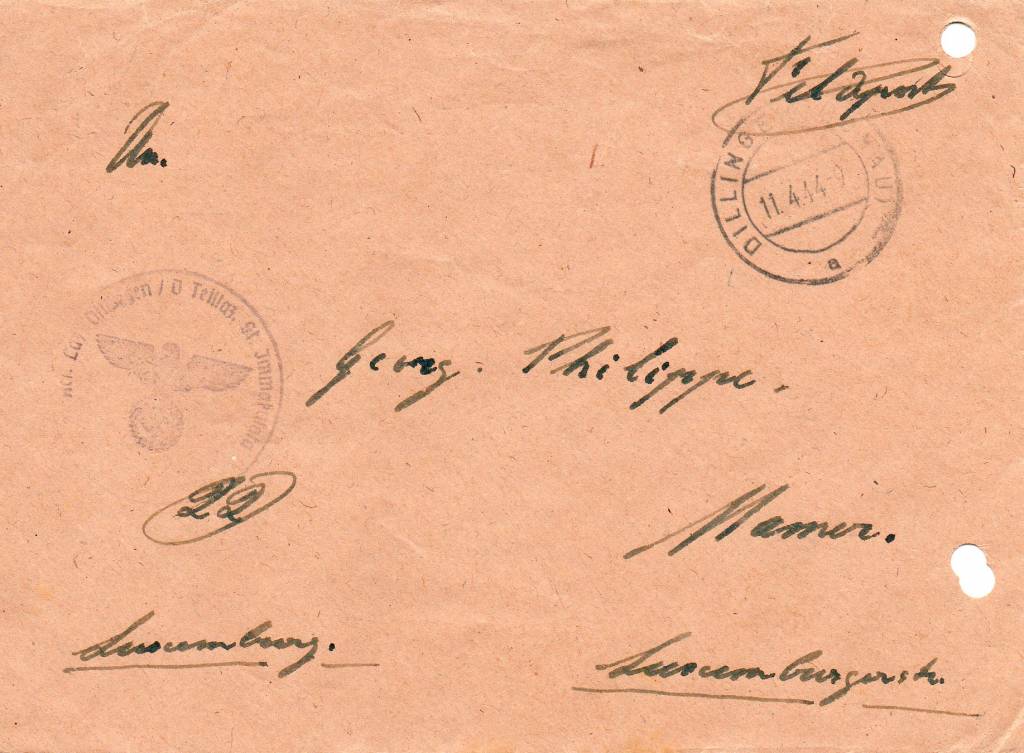 Feldpost
An.
DILLINGEN (DONAU)
11.4.44-9
a
Res. Laz. Dillingen / D Teillaz. St. Immakulata
Georg. Philippe.
22
Mamer.
Luxemburg.
Luxemburgerstr.